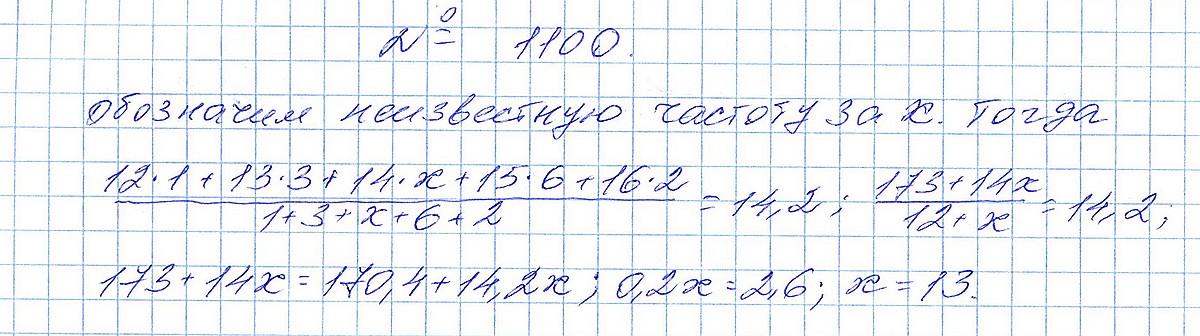 № 1100.
обозначим неизвестную частоту за x. Тогда
(12·1 + 13·3 + 14·x + 15·6 + 16·2)/(1 + 3 + x + 6 + 2) = 14,2; (173 + 14x)/(12 + x) = 14,2;
173 + 14x = 170,4 + 14,2x; 0,2x = 2,6; x = 13.